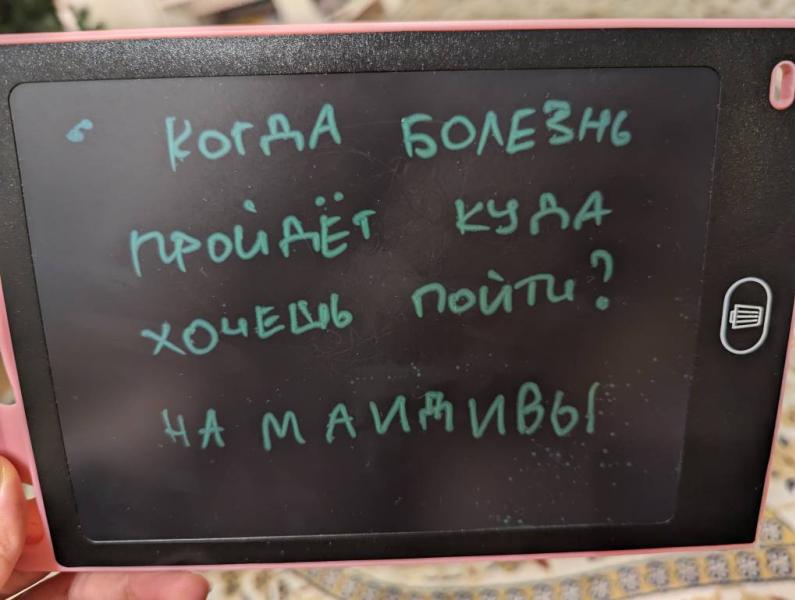 КОГДА БОЛЕЗНЬ
ПРОЙДЁТ КУДА
ХОЧЕШЬ ПОЙТИ?
НА МАИДИВЫ